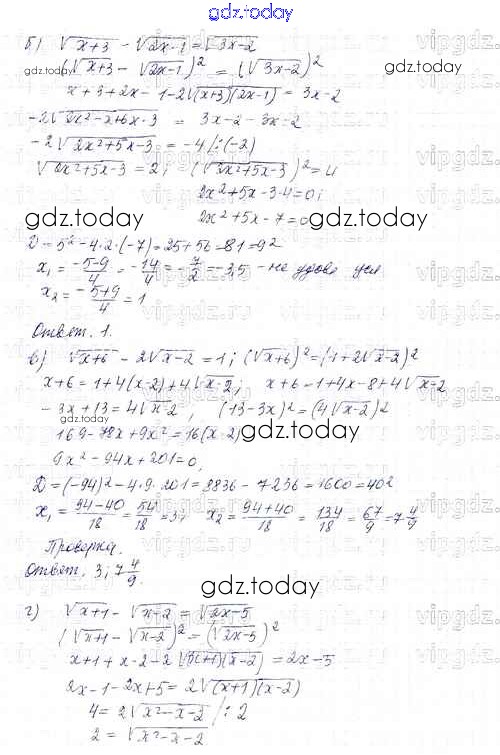 gdz.today
б) √x+3 - √2x-1 = √3x-2
(√x+3 - √2x-1)² = (√3x-2)²
x+3+2x-1-2√(x+3)(2x-1) = 3x-2
-2√2x²-x+6x-3 = 3x-2-3x-2
-2√2x²+5x-3 = -4 /:(-2)
√2x²+5x-3 = 2; (√2x²+5x-3)² = 4
2x²+5x-3-4=0;
2x²+5x-7=0;
D=5²-4·2·(-7)=25+56=81=9²
x₁ = -5-9/4 = -14/4 = -7/2 = -3,5 - не удовл усл
x₂ = -5+9/4 = 1
Ответ. 1.
в) √x+6 - 2√x-2 = 1; (√x+6)² = (1+2√x-2)²
x+6 = 1+4(x-2)+4√x-2; x+6=1+4x-8+4√x-2
-3x+13=4√x-2, (13-3x)²=(4√x-2)²
169-78x+9x²=16(x-2)
9x²-94x+201=0,
D=(-94)²-4·9·201=8836-7236=1600=40²
x₁ = 94-40/18 = 54/18 = 3; x₂ = 94+40/18 = 134/18 = 67/9 = 7 4/9
Проверка.
Ответ. 3; 7 4/9.
г) √x+1 - √x-2 = √2x-5
(√x+1 - √x-2)² = (√2x-5)²
x+1+x-2-2√(x+1)(x-2) = 2x-5
2x-1-2x+5 = 2√(x+1)(x-2)
4 = 2√x²-x-2 /:2
2 = √x²-x-2